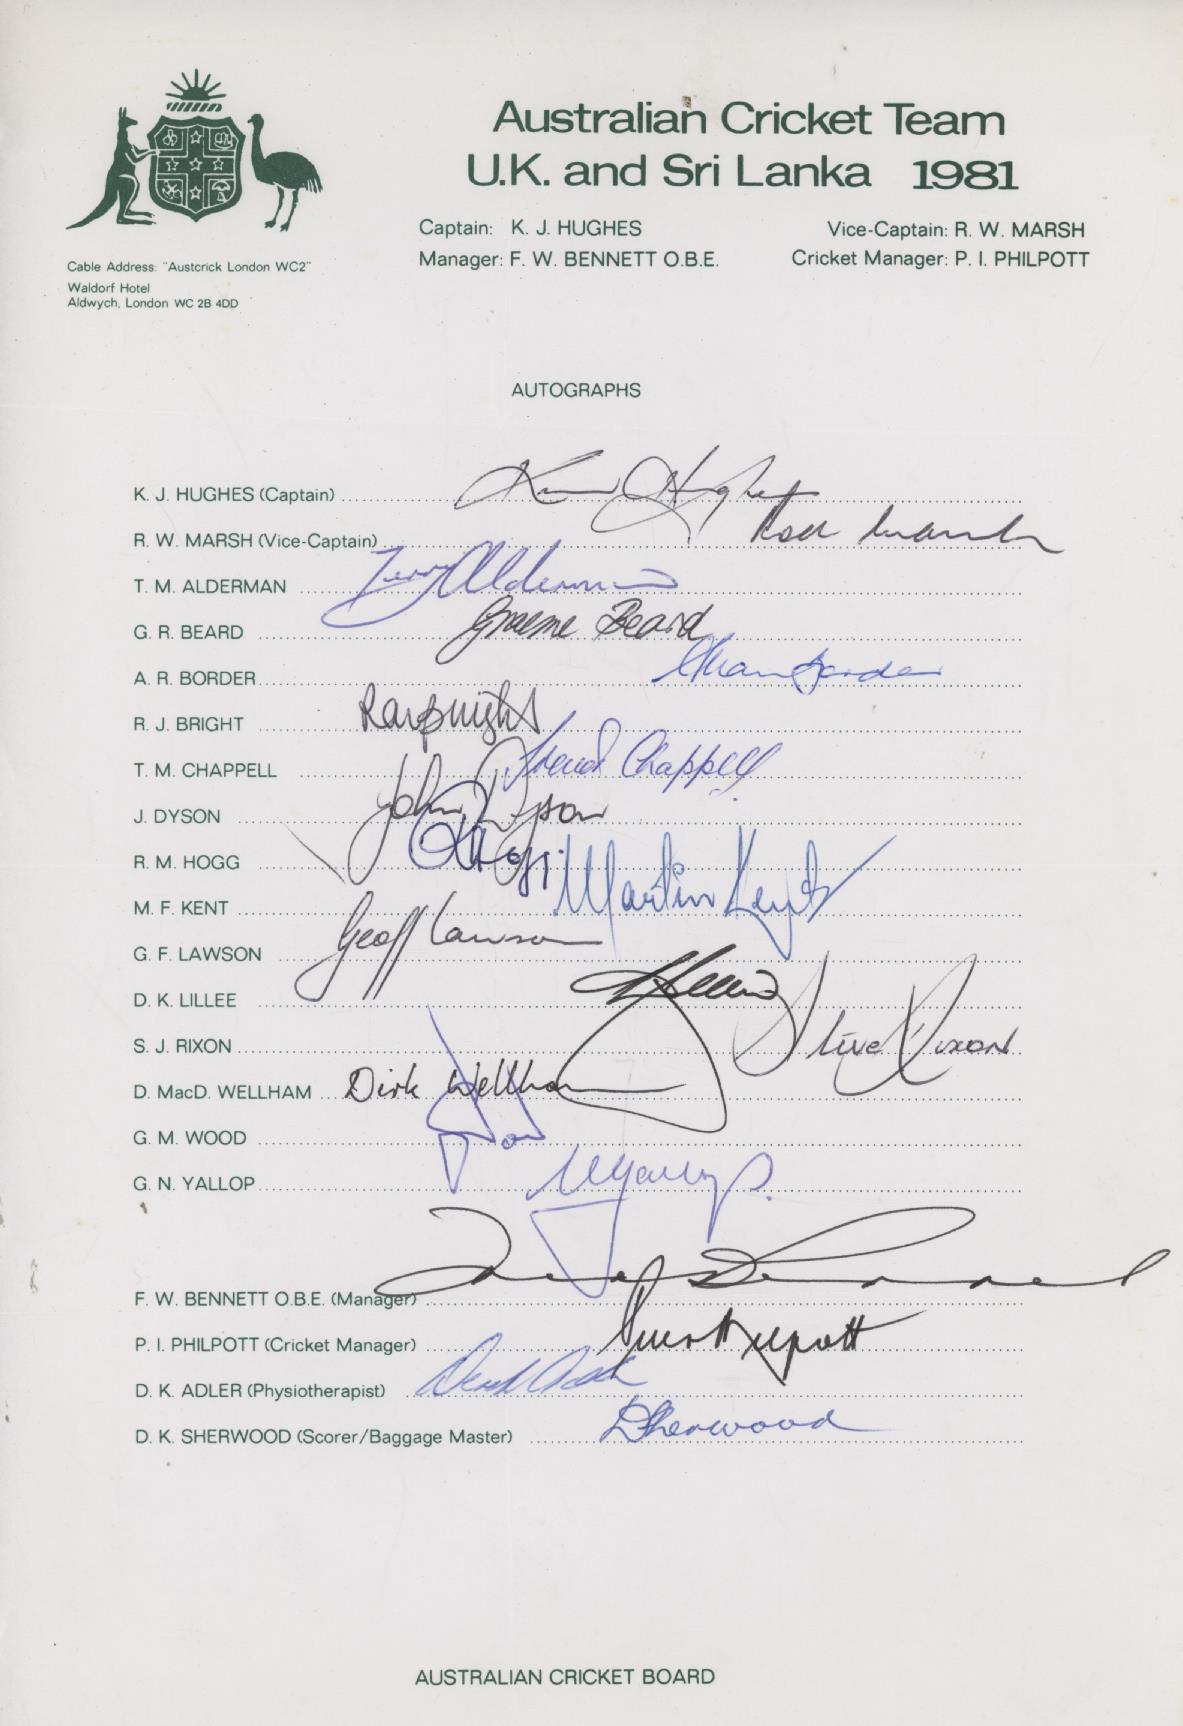 Australian Cricket Team
U.K. and Sri Lanka 1981
Captain: K. J. HUGHES Vice-Captain: R. W. MARSH
Manager: F. W. BENNETT O.B.E. Cricket Manager: P. I. PHILPOTT
Cable Address: "Austcrick London WC2"
Waldorf Hotel
Aldwych, London WC 2B 4DD
AUTOGRAPHS
K. J. HUGHES (Captain) Kim J Hughes
R. W. MARSH (Vice-Captain) Rod Marsh
T. M. ALDERMAN Terry Alderman
G. R. BEARD Graeme Beard
A. R. BORDER Allan Border
R. J. BRIGHT Ray Bright
T. M. CHAPPELL Trevor Chappell
J. DYSON John Dyson
R. M. HOGG R Hogg
M. F. KENT Martin Kent
G. F. LAWSON Geoff Lawson
D. K. LILLEE Lillee
S. J. RIXON Steve Rixon
D. MacD. WELLHAM Dirk Wellham
G. M. WOOD
G. N. YALLOP G Yallop
F. W. BENNETT O.B.E. (Manager)
P. I. PHILPOTT (Cricket Manager) Peter Philpott
D. K. ADLER (Physiotherapist)
D. K. SHERWOOD (Scorer/Baggage Master) D Sherwood
AUSTRALIAN CRICKET BOARD